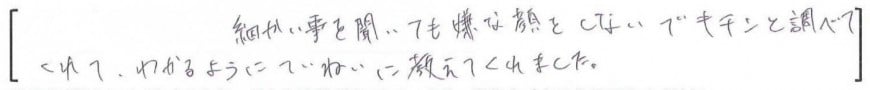 細かい事を聞いても嫌な顔をしないでキチンと調べて
くれて、わかるようにていねいに教えてくれました。